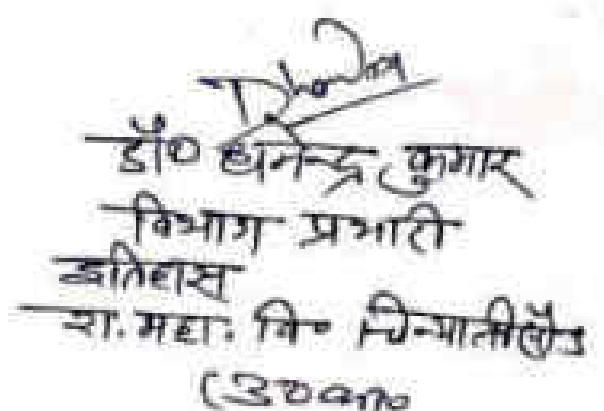 डॉ० धनेन्द्र कुमार
विभाग प्रभारी
इतिहास
रा. महा. वि० चिन्यालीसौड़
(उ०का०